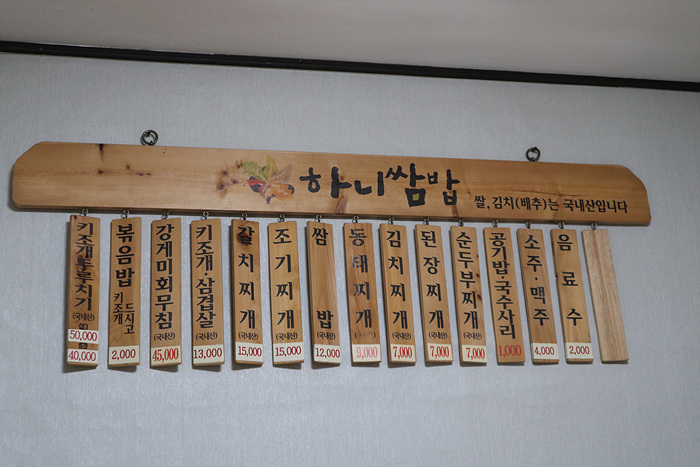 하니쌈밥
쌀,김치(배추)는 국내산입니다
키조개두루치기
(국내산)
50,000
40,000
볶음밥
키조개 드시고
2,000
강게미회무침
(국내산)
45,000
키조개·삼겹살
(국내산)
13,000
갈치찌개
(국내산)
15,000
조기찌개
(국내산)
15,000
쌈밥
(국내산)
12,000
동태찌개
9,000
김치찌개
(국내산)
7,000
된장찌개
(국내산)
7,000
순두부찌개
(국내산)
7,000
공기밥·국수사리
1,000
소주·맥주
4,000
음료수
2,000